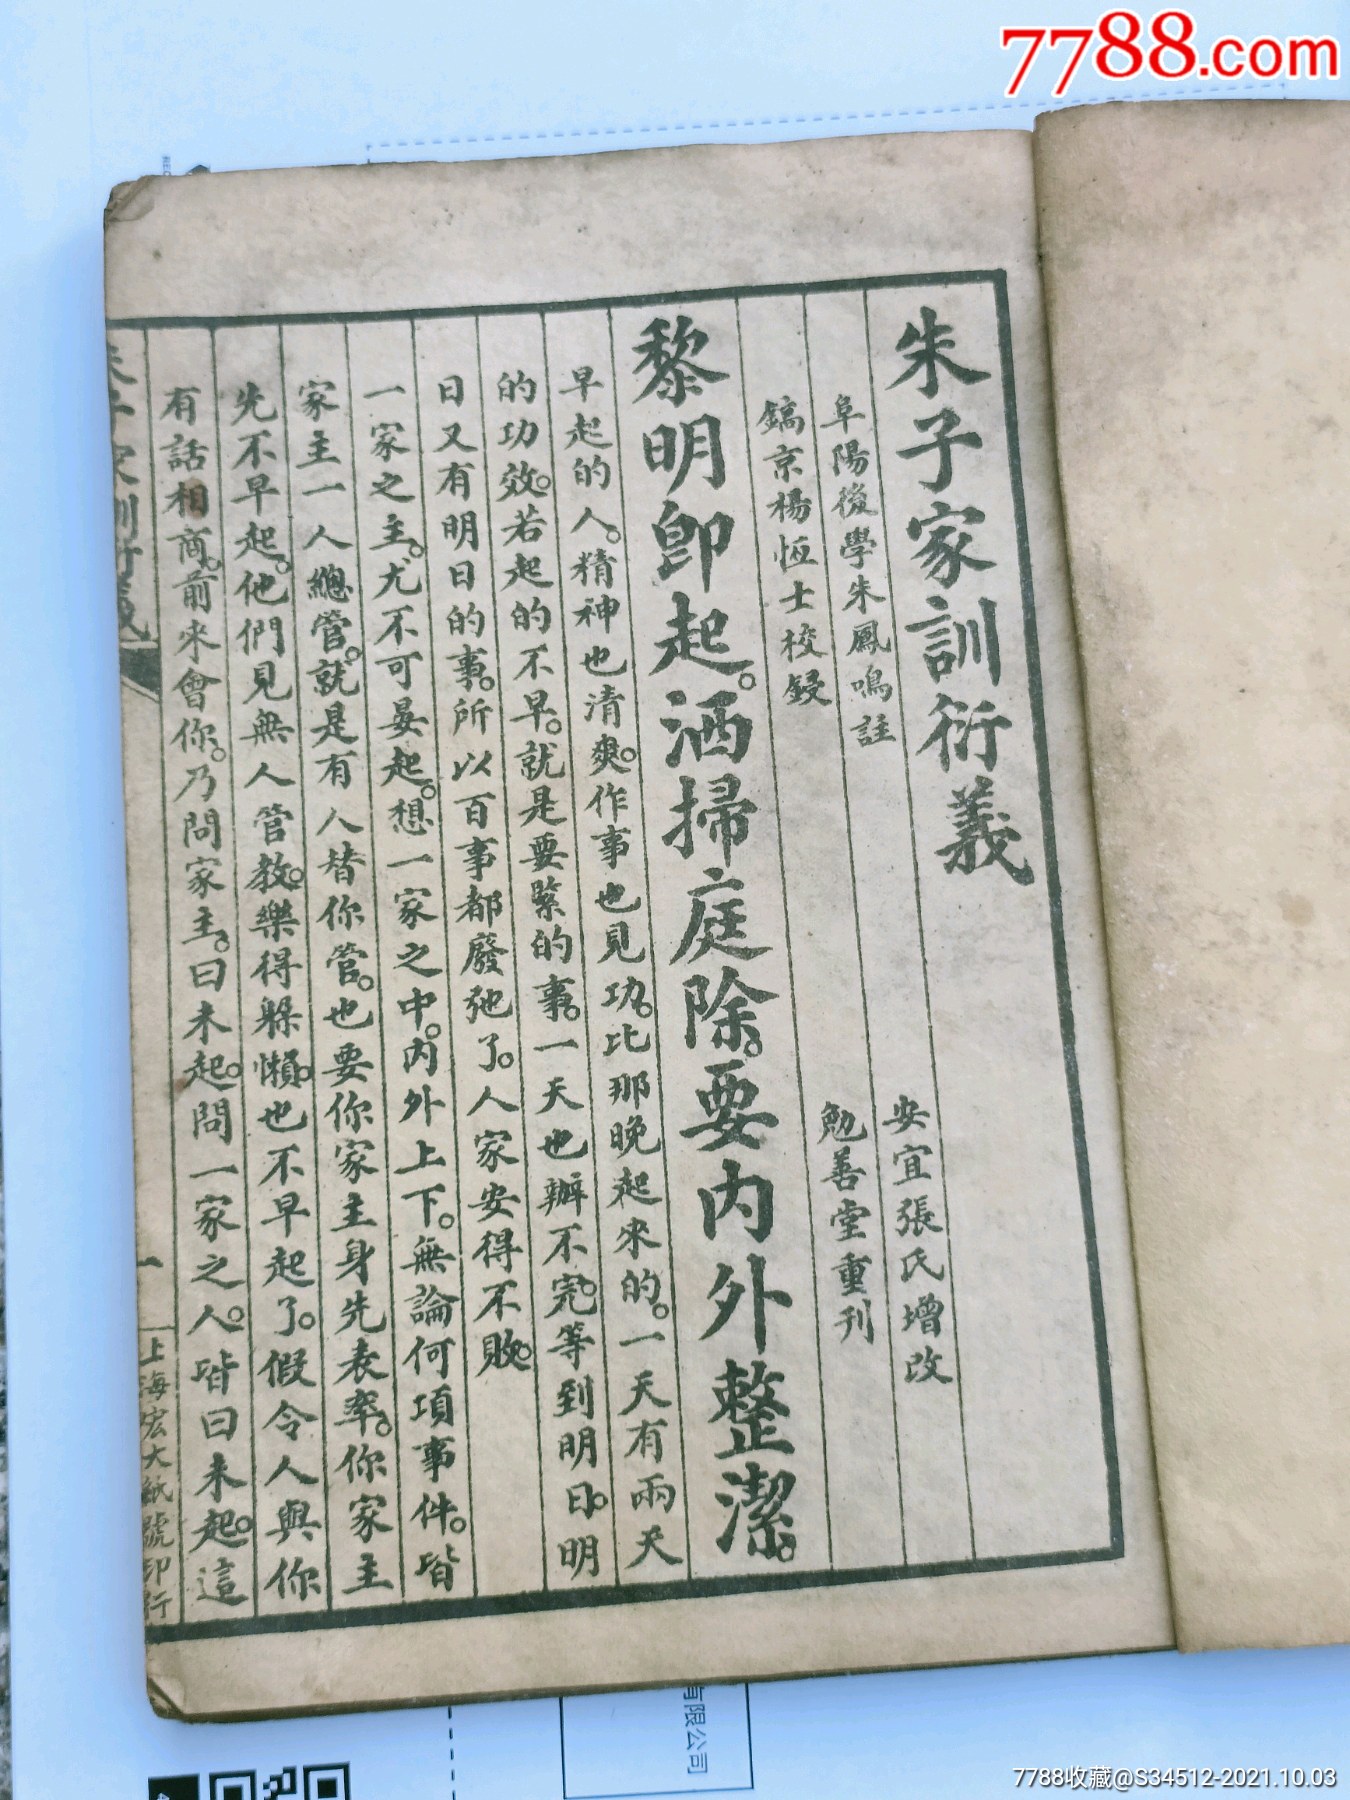 7788.com
朱子家訓衍義
阜陽後學朱鳳鳴註
安宜張氏增改
鎬京楊恆士校鋟
勉善堂重刊
黎明即起。洒掃庭除。要內外整潔。
早起的人。精神也清爽。作事也見功。比那晚起來的。一天有兩天
的功效。若起的不早。就是要緊的事。一天也辦不完。等到明日。明
日又有明日的事。所以百事都廢弛了。人家安得不敗。
一家之主。尤不可晏起。想一家之中。內外上下。無論何項事件。皆
家主一人總管。就是有人替你管。也要你家主身先表率。你家主
先不早起。他們見無人管教。樂得躲懶。也不早起了。假令人與你
有話相商。前來會你。乃問家主。曰未起。問一家之人。皆曰未起。這
朱子家訓衍義
一
上海宏大紙號印行
有限公司
7788收藏@S34512-2021.10.03